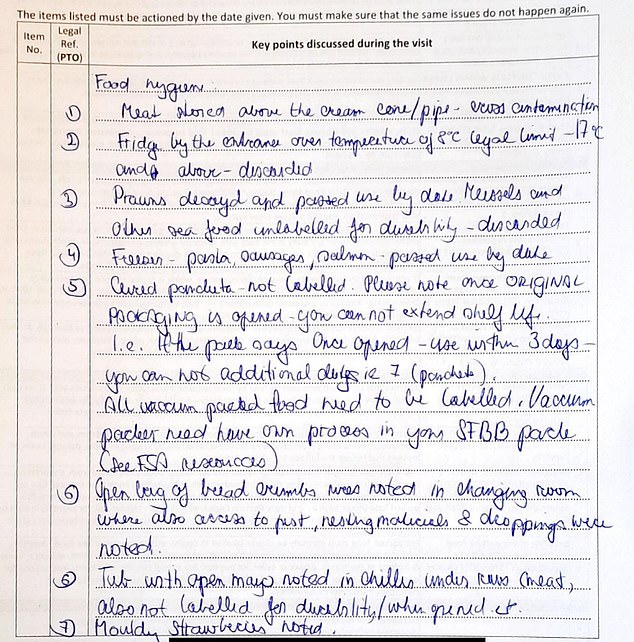 The items listed must be actioned by the date given. You must make sure that the same issues do not happen again.
Item No.
Legal Ref. (PTO)
Key points discussed during the visit
Food hygiene
① Meat stored above the cream cone/pipe - cross contamination
② Fridge by the entrance over temperature of 8°C legal limit - 17°C
and above - discarded
③ Prawns decayd and passed use by date Mussels and
other sea food unlabelled for durability - discarded
④ Freezer - pasta, sausages, salmon - passed use by date
⑤ Cured pancheta - not labelled. Please note once ORIGINAL
PACKAGING is opened - you can not extend shelf life.
I.e. If the pack says Once opened - use within 3 days -
you can not additional days ie 7 (pancheta).
All vaccum packed food need to be labelled. Vaccum
packer need have own process in your SFBB pack
(see FSA resources)
⑥ Open bag of bread crumbs was noted in changing room
where also access to pest, nesting materials & droppings were
noted.
⑥ Tub with open mayo noted in chiller under raw meat,
also not labelled for durability/when opened et.
⑦ Mouldy strawberies noted.